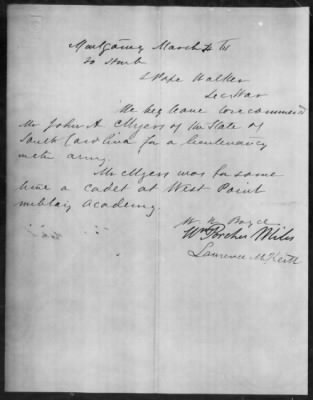 Montgomery March
To Honb
L Pope Walker
Sec War
We beg leave to recommend
Mr John A Myers of the State of
South Carolina for a lieutenancy
in the army.
Mr Myers was for some
time a cadet at West Point
military academy.
W. W. Boyce
Wm Porcher Miles
Lawrence M Keitt